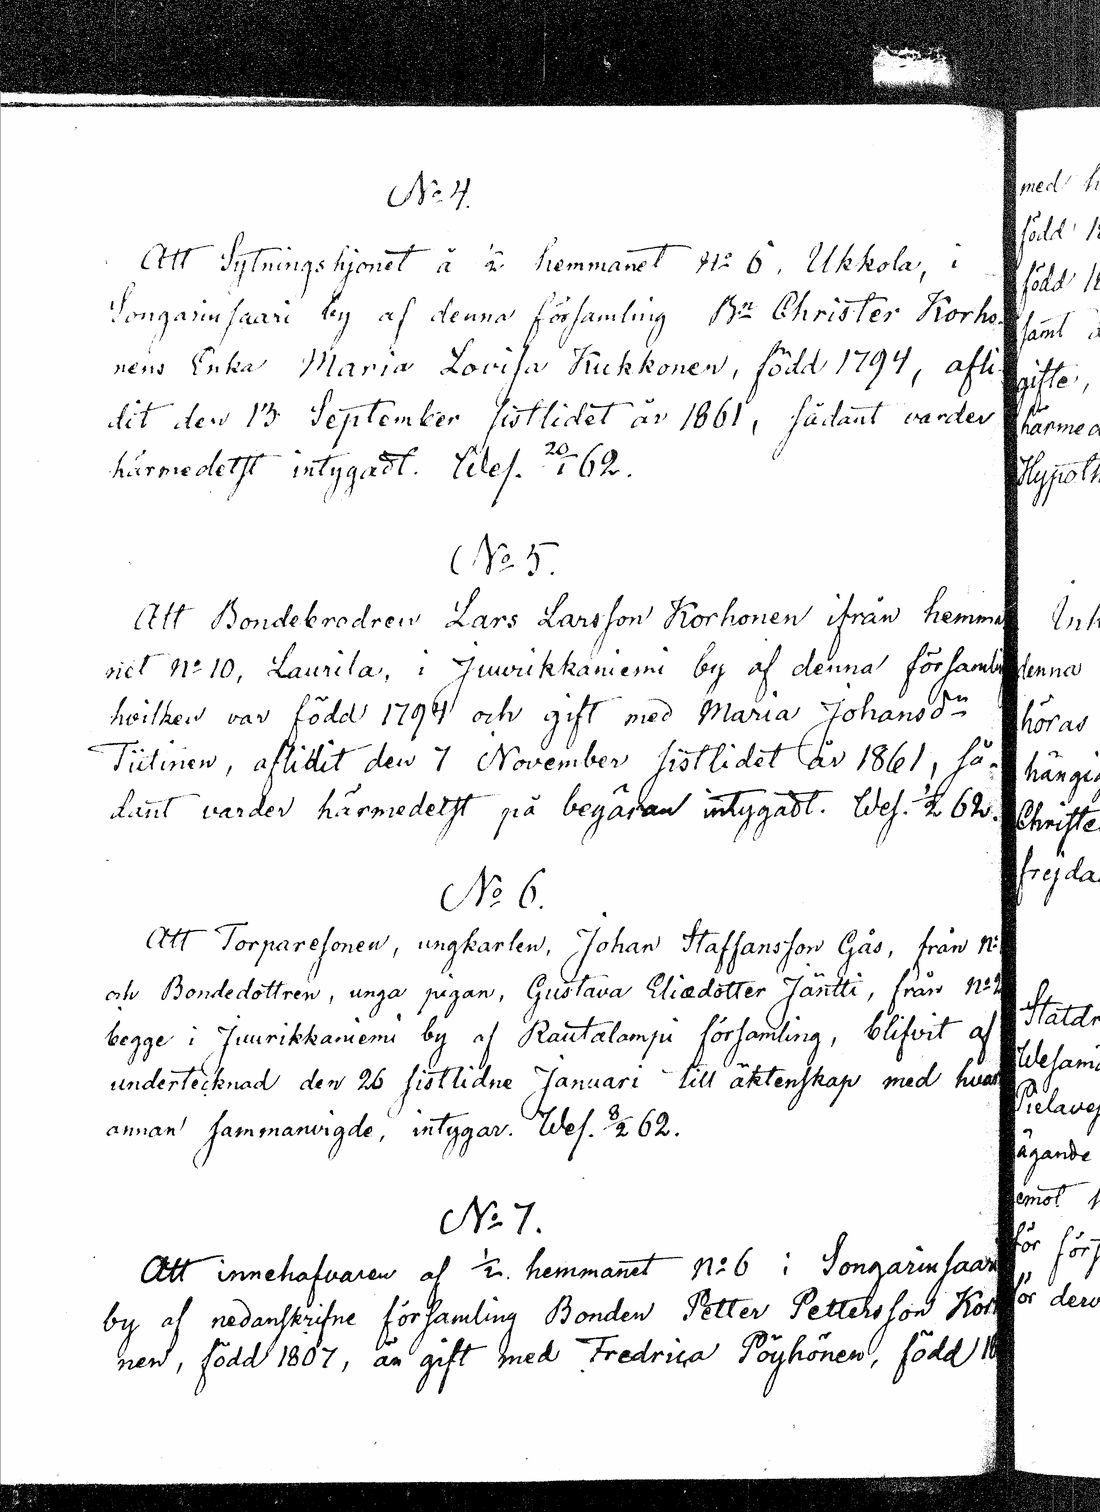 No 4.
Att Sytningshjonet å 1/2 hemmanet No 6, Ukkola, i
Songarinsaari by af denna församling Bn Christer Korho-
nens Enka Maria Lovisa Kukkonen, född 1794, afli-
dit den 13 September sistlidet år 1861, sådant varder
härmedelst intygadt. Wes. 20/1 62.
No 5.
Att Bondebrodren Lars Larsson Korhonen ifrån hemma
net No 10, Laurila, i Juurikkaniemi by af denna församli
hvilken var född 1794 och gift med Maria Johansdn
Tiitinen, aflidit den 7 November sistlidet år 1861, så-
dant varder härmedelst på begäran intygadt. Wes. 1/2 62.
No 6.
Att Torparesonen, ungkarlen, Johan Staffansson Gås, från No
och Bondedottren, unga pigan, Gustava Eliædotter Jäntti, från No 2
begge i Juurikkaniemi by af Rautalampi församling, blifvit af
undertecknad den 26 sistlidne Januari till äktenskap med hvar
annan sammanvigde, intygar. Wes. 8/2 62.
No 7.
Att innehafvaren af 1/2 hemmanet No 6 i Songarinsaari
by af nedanskrifne församling Bonden Petter Pettersson Kor
nen, född 1807, än gift med Fredrica Pöyhönen, född 18
med h
född 1
född 18
samt
gifte,
härmed
Hypoth
Inh
denna
höras
hängig
Christe
frejda
Statdr
Wesam
Pielavej
ägande
emot
för förs
för derv